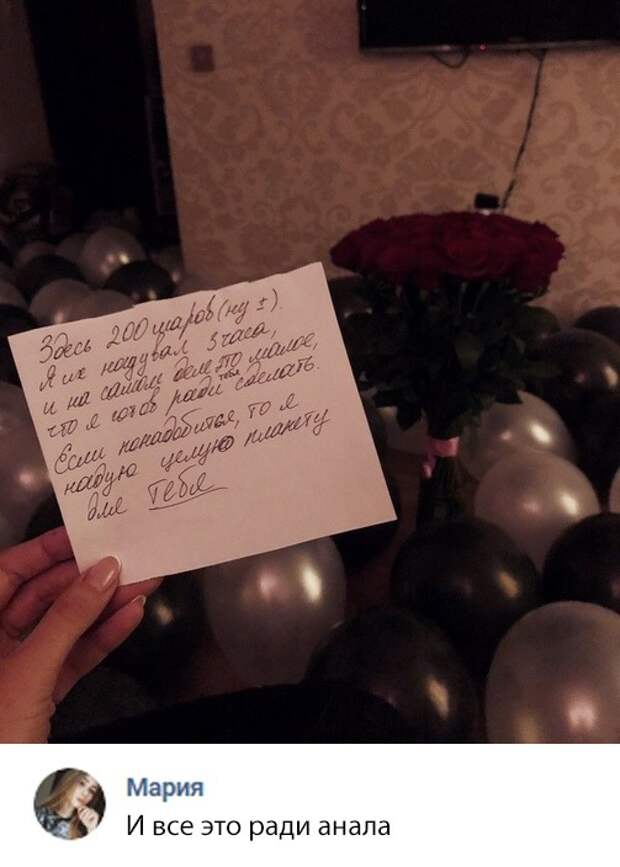 Здесь 200 шаров (ну ±).
Я их надувал 3 часа,
и на самом деле это малое,
что я готов ради тебя сделать.
Если понадобиться, то я
надую целую планету
для тебя
Мария
И все это ради анала